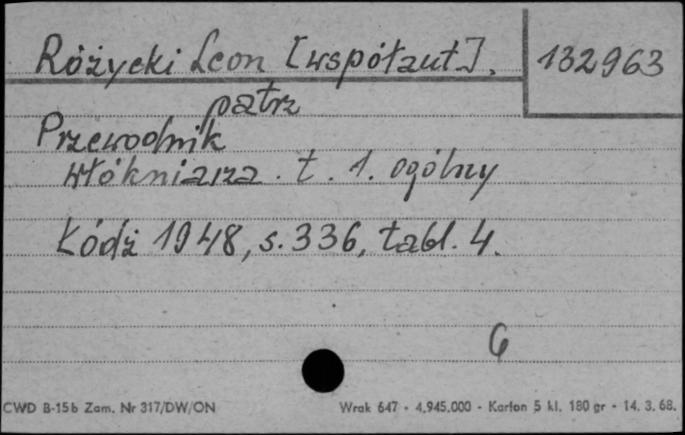 Różycki Leon [współaut.].
132963
patrz
Przewodnik
włókniarza. t. 1. ogólny
Łódź 1948, s. 336, tabl. 4.
6
CWD B-15b Zam. Nr 317/DW/ON
Wrak 647 - 4.945.000 - Karton 5 kl. 180 gr - 14. 3. 68.